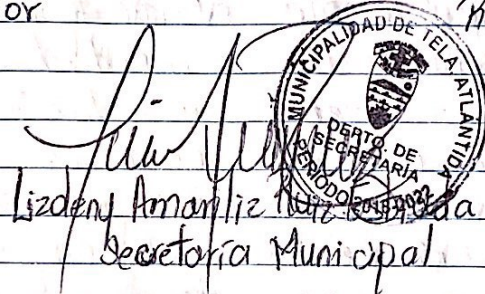 or
MUNICIPALIDAD DE TELA ATLANTIDA
DEPTO. DE
SECRETARIA
PERIODO 2018-2022
Lizdeny Amariliz
Secretaria Municipal